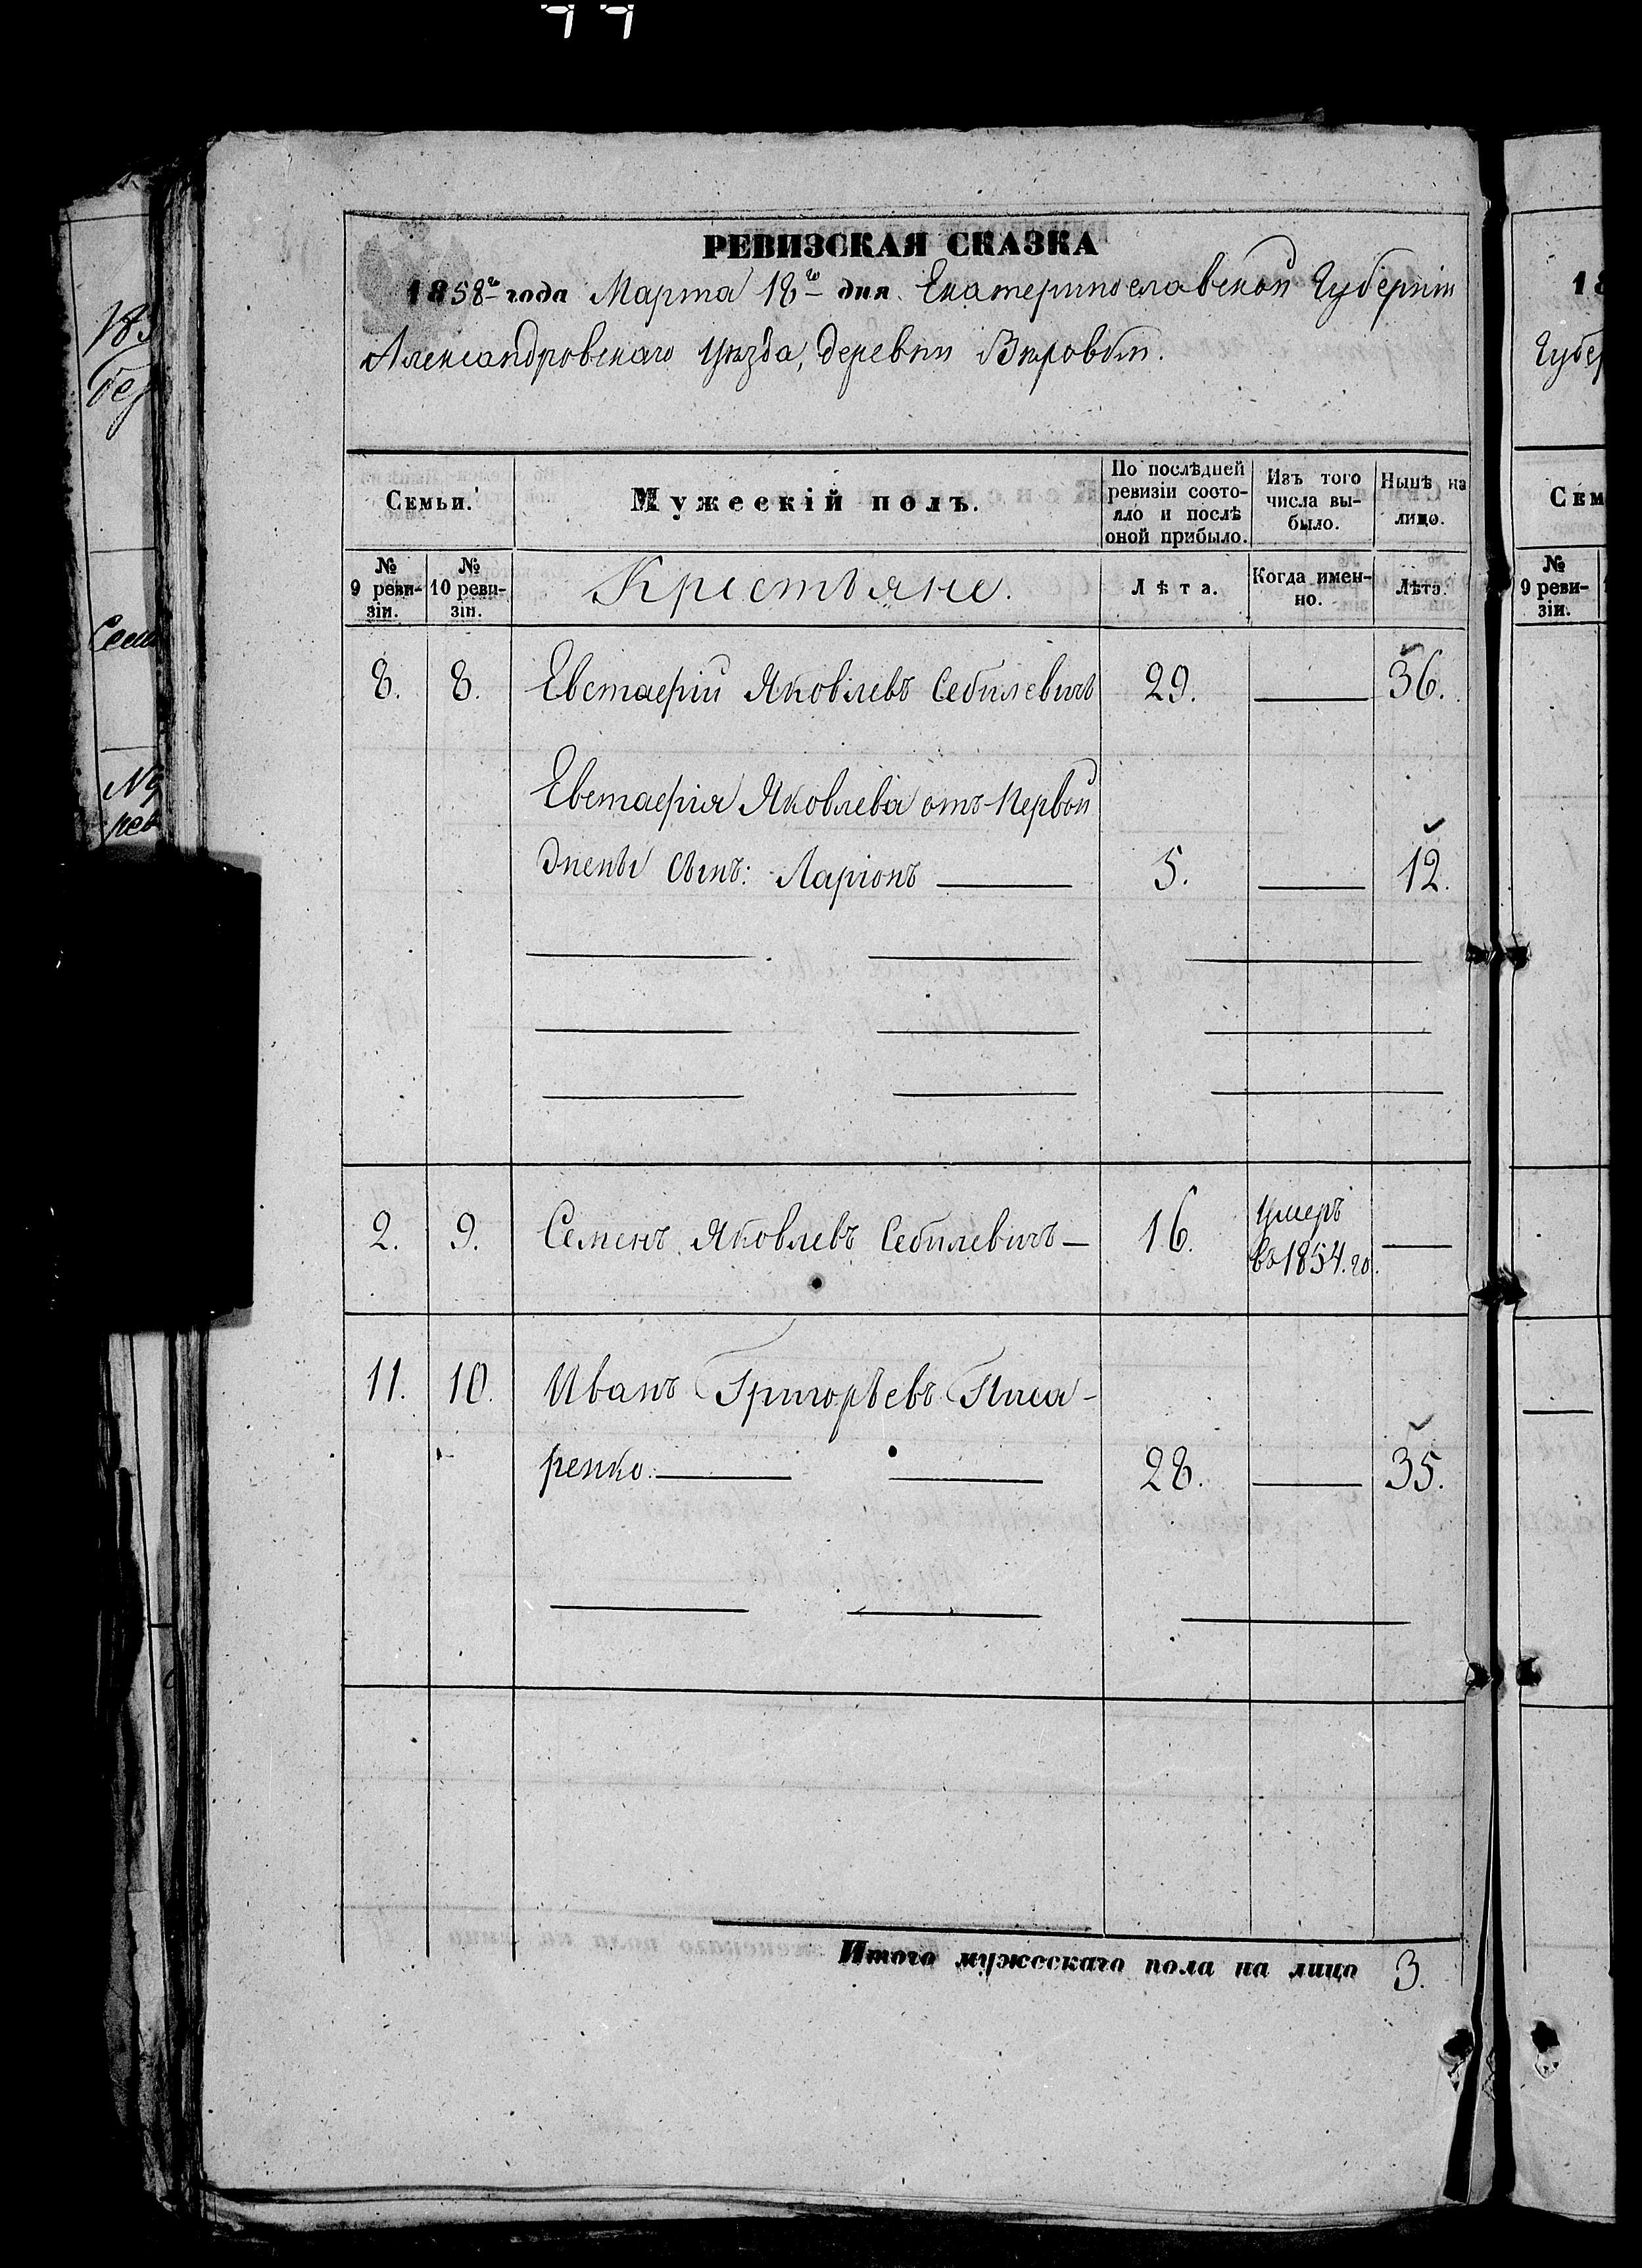 РЕВИЗСКАЯ СКАЗКА
1858го года Марта 18го дня Екатеринославской Губерніи
Александровскаго уѣзда, деревни Вѣровки.
Семьи.
Мужескій полъ.
По послѣдней ревизіи состояло и послѣ оной прибыло.
Изъ того числа выбыло.
Нынѣ на лицо.
№ 9 ревизіи.
№ 10 ревизіи.
Крестьяне.
Лѣта.
Когда именно.
Лѣта.
8. 8. Евстаѳій Яковлевъ Себилевичъ 29. — 36.
Евстаѳія Яковлева отъ первой
жены сынъ: Ларіонъ — 5. — 12.
2. 9. Семенъ Яковлевъ Себилевичъ — 16. умеръ
въ 1854. го. —
11. 10. Иванъ Григорьевъ Писа-
ренко. — 28. — 35.
Итого мужескаго пола на лицо 3.
18
Губер
Сем
№
9 реви-
зіи.